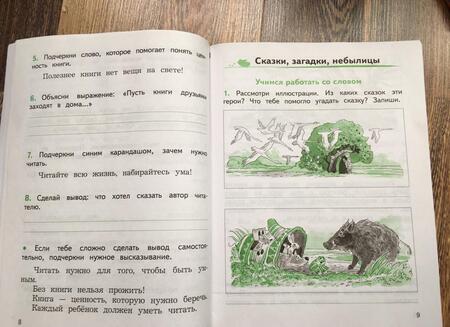 5. Подчеркни слово, которое помогает понять цен-
ность книги.
Полезнее книги нет вещи на свете!
6. Объясни выражение: «Пусть книги друзьями
заходят в дома...»
7. Подчеркни синим карандашом, зачем нужно
читать.
Читайте всю жизнь, набирайтесь ума!
8. Сделай вывод: что хотел сказать автор чита-
телю.
• Если тебе сложно сделать вывод самостоя-
тельно, подчеркни нужное высказывание.
Читать нужно для того, чтобы быть ум-
ным.
Без книги нельзя прожить!
Книга — ценность, которую нужно беречь.
Каждый ребёнок должен уметь читать.
8
Сказки, загадки, небылицы
Учимся работать со словом
1. Рассмотри иллюстрации. Из каких сказок эти
герои? Что тебе помогло угадать сказку? Запиши.
9